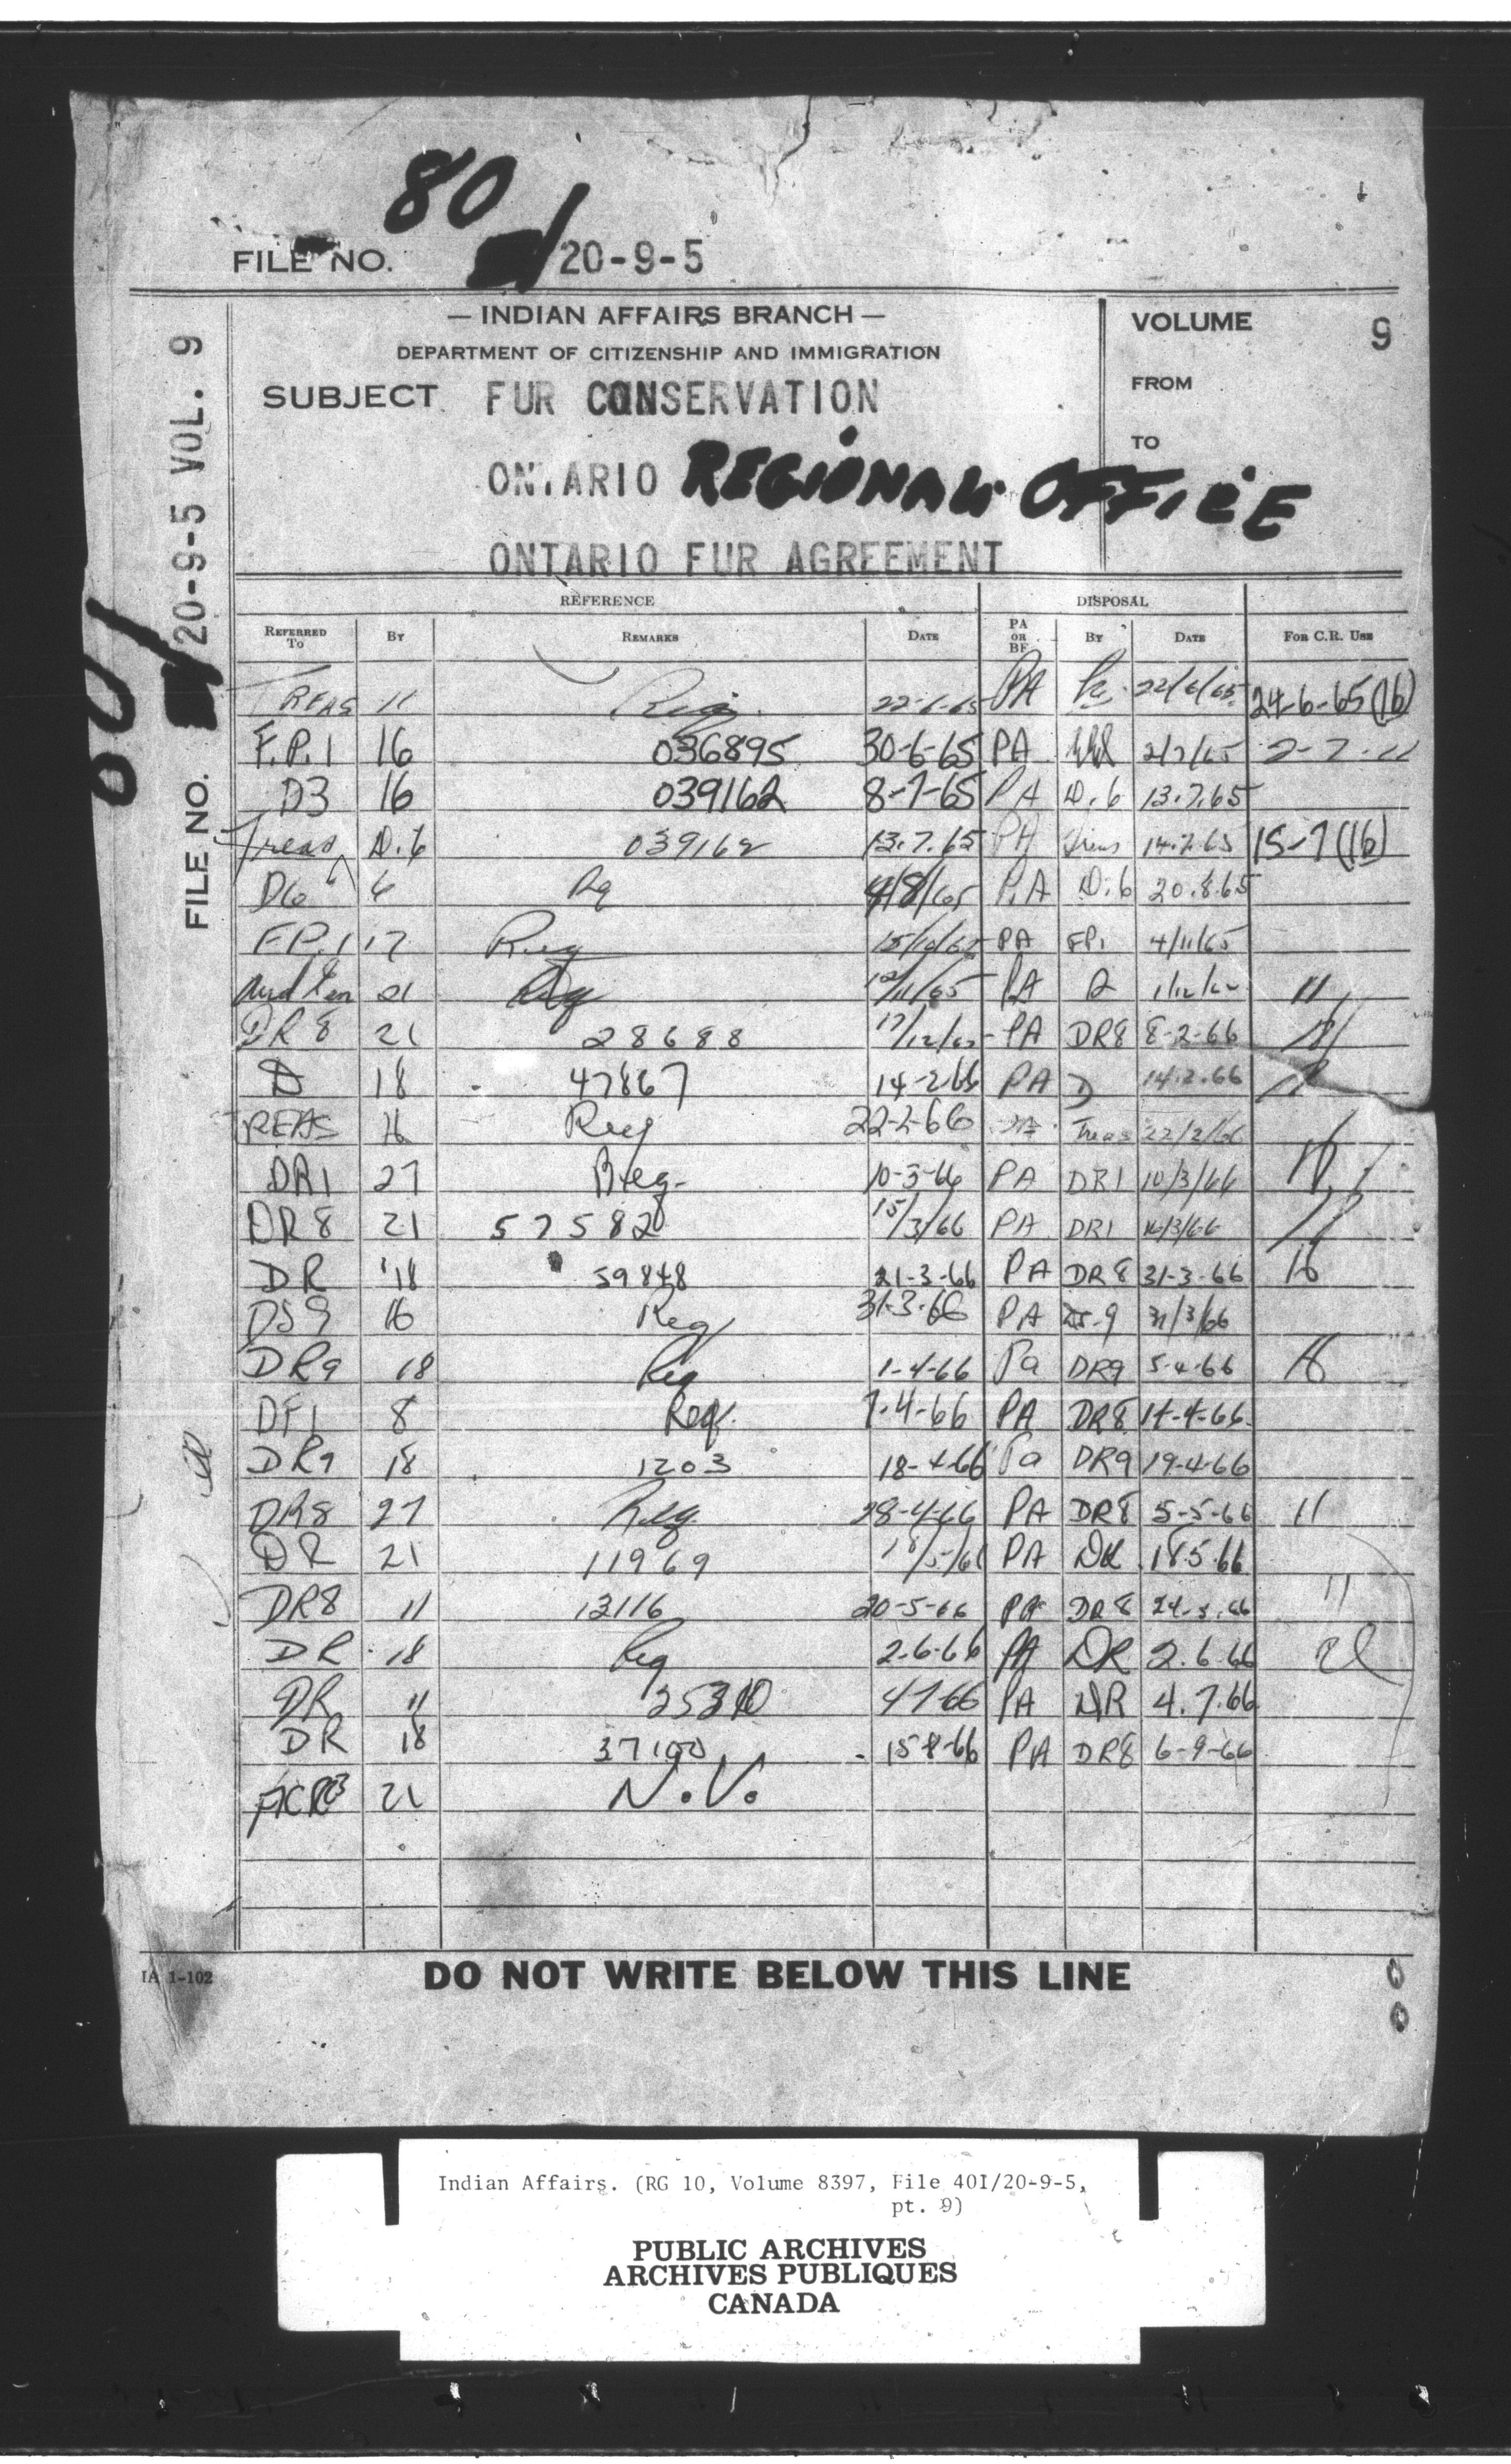 80/20-9-5
FILE NO.
— INDIAN AFFAIRS BRANCH —
DEPARTMENT OF CITIZENSHIP AND IMMIGRATION
SUBJECT FUR CONSERVATION
ONTARIO REGIONAL OFFICE
ONTARIO FUR AGREEMENT
VOLUME 9
FROM
TO
FILE NO. 80/20-9-5 VOL. 9
REFERENCE DISPOSAL
REFERRED TO BY REMARKS DATE PA OR BF BY DATE FOR C.R. USE
TREAS 11 Req. PA 22/6/65 24-6-65 (16)
F.P.1 16 036895 30-6-65 PA 2/7/65 2-7-11
D3 16 039162 8-7-65 PA D.6 13.7.65
Treas D.6 039162 13.7.65 PA Treas 14.7.65 15-7 (16)
D6 6 Rq 4/8/65 P.A D.6 20.8.65
F.P.1 17 Req 15/10/65 PA FP1 4/11/65
21 Req PA 11
DR8 21 28688 17/12/65 PA DR8 8-2-66
D 18 47867 14-2-66 PA D 14.2.66
REAS 16 Req 22-2-66 Treas 22/2/66
DR1 27 Req- 10-3-66 PA DR1 10/3/66
DR8 21 57582 15/3/66 PA DR1 16/3/66
DR 18 59848 21-3-66 PA DR8 31-3-66 16
DS9 16 Req 31-3-66 PA DS-9 31/3/66
DR9 18 Req 1-4-66 Pa DR9 5-4-66
DF1 8 Req. 7-4-66 PA DR8 14-4-66
DR9 18 1203 18-4-66 Pa DR9 19-4-66
DR8 27 Req 28-4-66 PA DR8 5-5-66 11
DR 21 11969 PA DR 18.5.66
DR8 11 13116 20-5-66 PA DR8 24-5-66 11
DR 18 Req 2-6-66 PA DR 2.6.66
DR 11 25310 4766 PA DR 4.7.66
DR 18 37100 15-8-66 PA DR8 6-9-66
21 N.V.
IA 1-102
DO NOT WRITE BELOW THIS LINE
Indian Affairs. (RG 10, Volume 8397, File 401/20-9-5,
pt. 9)
PUBLIC ARCHIVES
ARCHIVES PUBLIQUES
CANADA